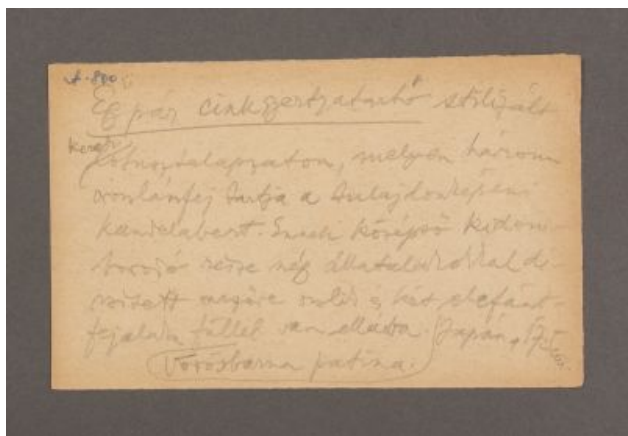 Egy pár cinkgyertyatartó stilizált
kerek lótusztalapzaton, melyen három
oroszlánfej tartja a tulajdonképeni
kandelabert. Ennek középső kidom-
borodó része négy állatalakokkal dí-
szített mezőre oszlik és két elefánt-
fejalakú füllel van ellátva. Japán,
Vörösbarna patina.